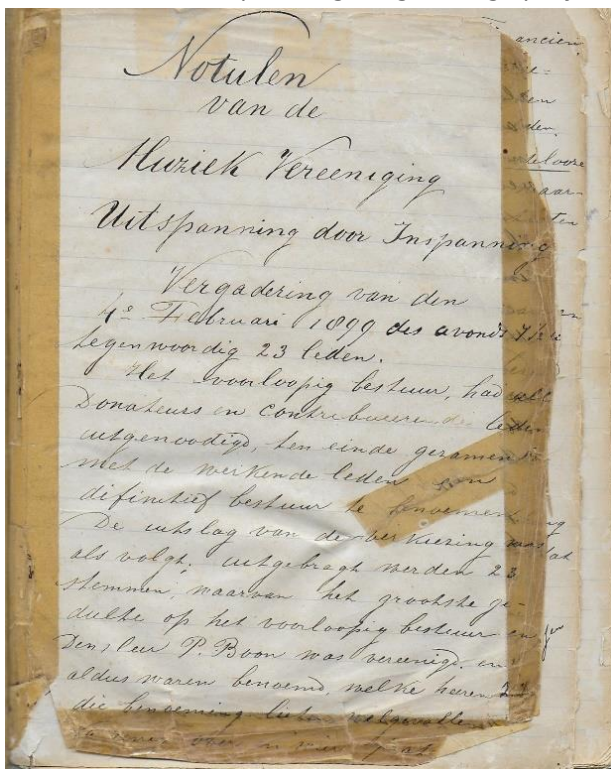 Notulen
van de
Muziek Vereeniging
Uitspanning door Inspanning
Vergadering van den
4e Februari 1899 des avonds 7
tegenwoordig 23 leden.
Het voorloopig bestuur, had alle
Donateurs en Contribueerende leden
uitgenoodigd, ten einde gezamenlijk
met de werkende leden een
difinitief bestuur te benoemen
De uitslag van de verkiezing was
als volgt. uitgebragt werden 23
stemmen, waarvan het grootste ge-
deelte op het voorloopig bestuur en
Den Heer P. Boon was vereenigd. en
aldus waren benoemd, welke heeren
die benoeming lieten welgevallen
ancien
ken
den.
teloore
aar-
ten